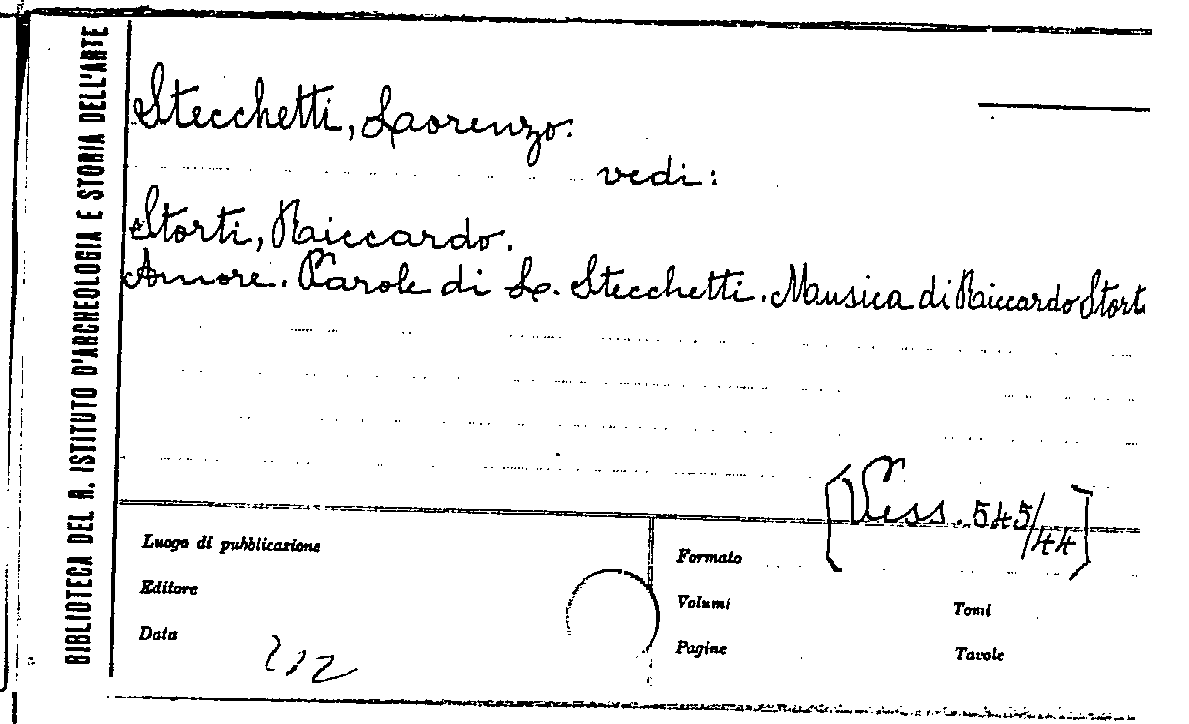 BIBLIOTECA DEL R. ISTITUTO D'ARCHEOLOGIA E STORIA DELL'ARTE
Stecchetti, Lorenzo.
vedi:
Storti, Riccardo.
Amore. Parole di L. Stecchetti. Musica di Riccardo Storti
[Vess. 545/44]
Luogo di pubblicazione
Editore
Data
212
Formato
Volumi
Tomi
Pagine
Tavole